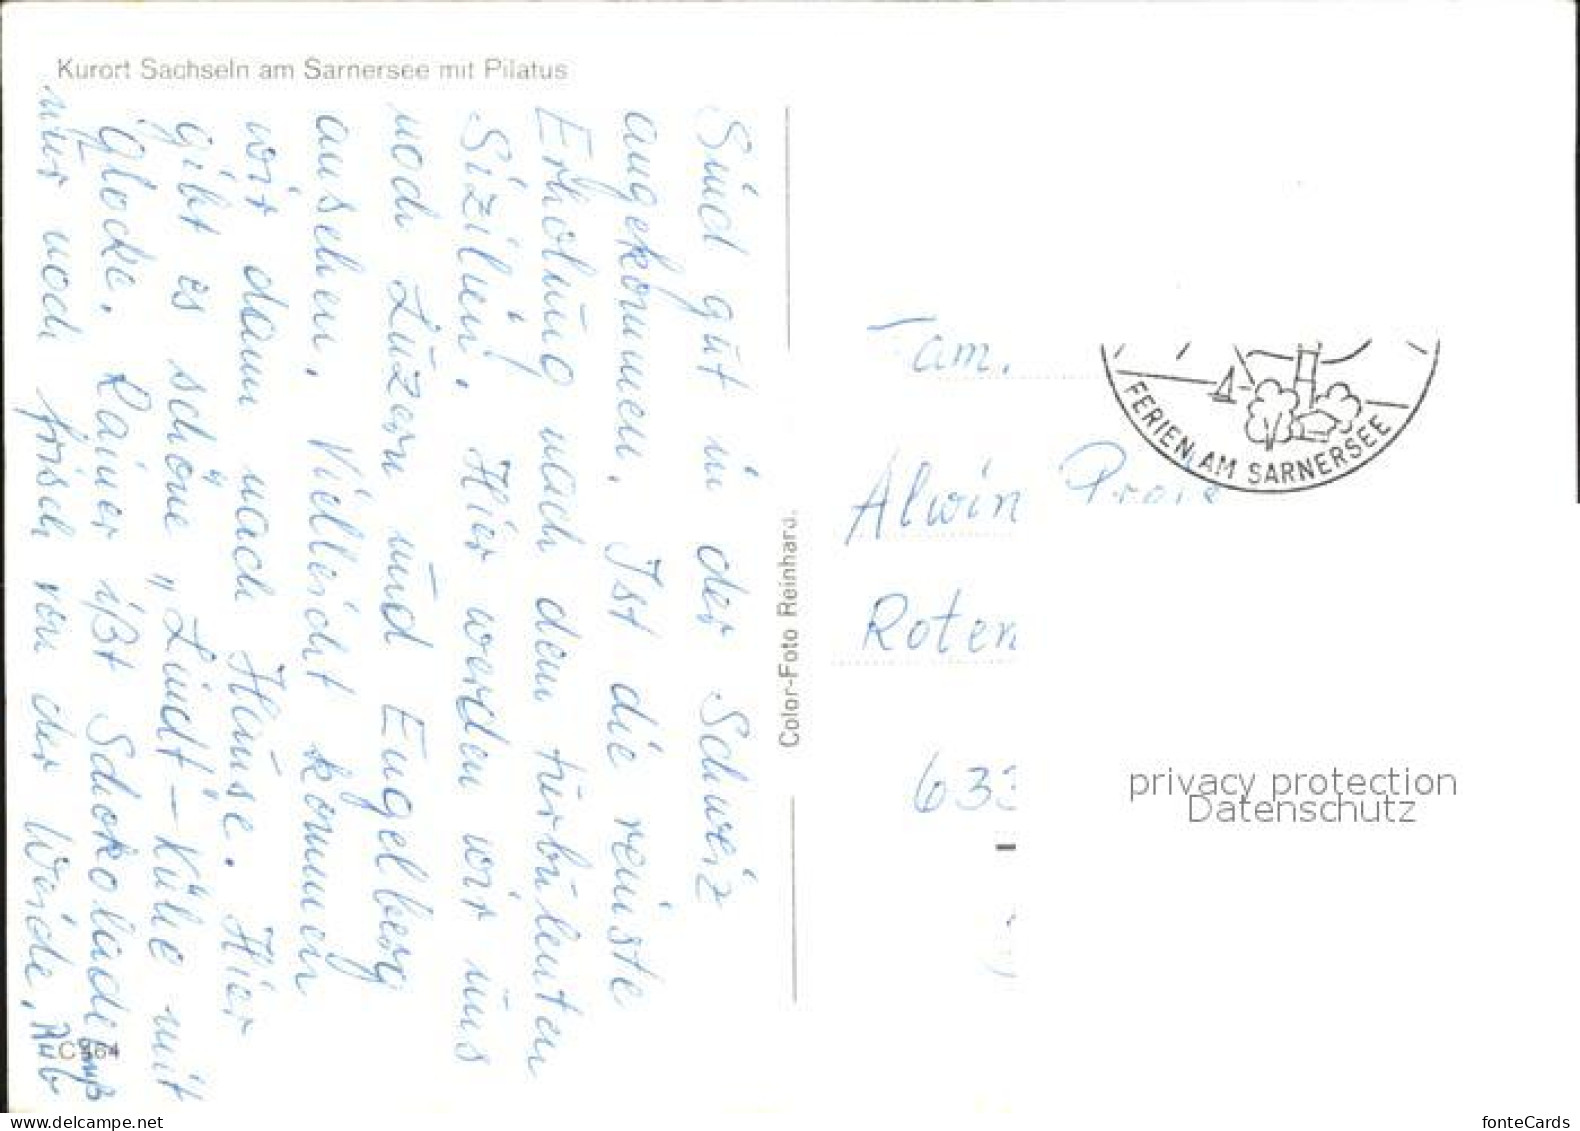 Kurort Sachseln am Sarnersee mit Pilatus
Sind gut in der Schweiz
angekommen. Ist die reinste
Erholung nach dem turbulenten
Sizilien! Hier werden wir uns
noch Luzern und Engelberg
ansehen. Vielleicht kommen
wir dann nach Hause. Hier
gibt es schöne "Lindt-Kühe mit
Glocke. Rainer ißt Schokolade
nur noch frisch von der Weide.
C 464
Color-Foto Reinhard.
Fam.
Alwin
Roten
633
FERIEN AM SARNERSEE
privacy protection
Datenschutz
www.delcampe.net
fonteCards